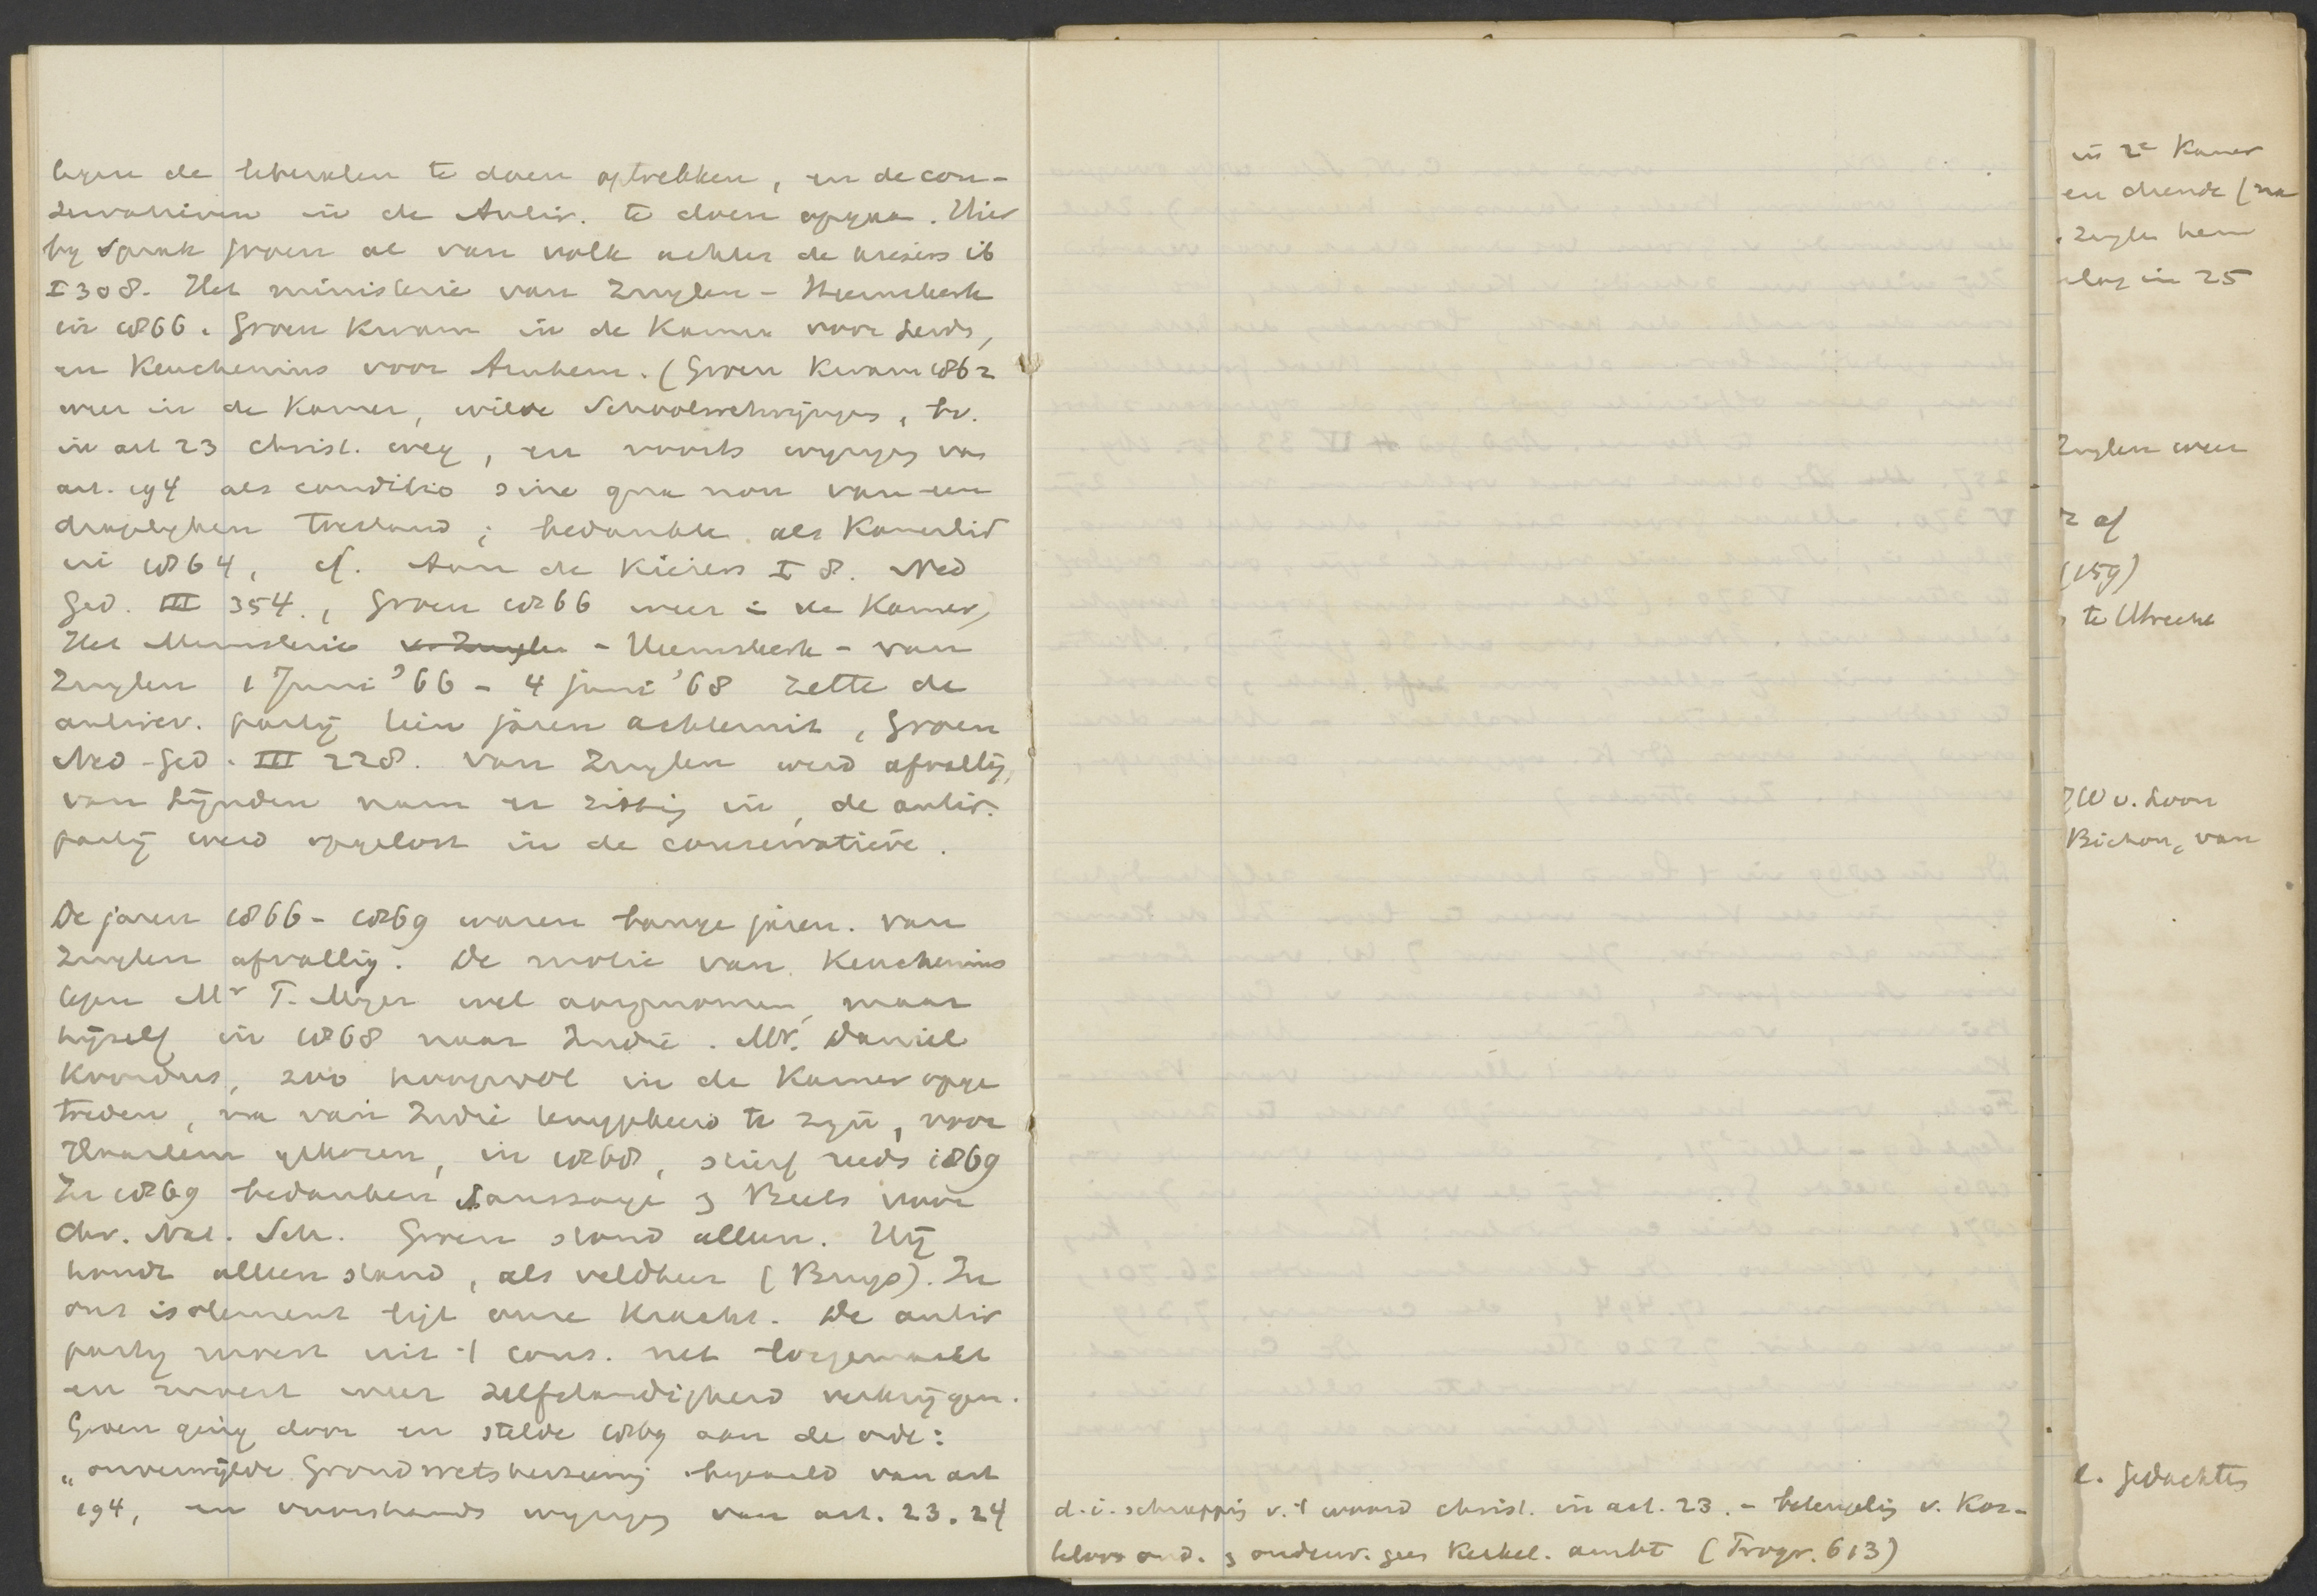 tegen de liberalen te doen optrekken, en de con-
servatieven in de Antir. te doen opgaan. Hier
by sprak Groen al van volk achter de kiezers ib
I 308. Het ministerie van Zuylen - Heemskerk
in 1866. Groen kwam in de Kamer voor Leids,
en Keuchenius voor Arnhem. (Groen kwam 1862
weer in de Kamer, wilde Schoolwetwijziging, bv.
in art 23 christ. weg, en voorts wijziging van
art. 194 als conditio sine qua non van een
dragelyken toestand; bedankte als Kamerlid
in 1864, cf. Aan de Kiezers I 8. Ned
Ged. III 354., Groen 1866 weer in de Kamer,
Het Ministerie v. Zuylen - Heemskerk - van
Zuylen 1 Juni '66 - 4 juni '68 zette de
antirev. partij tien jaren achteruit, Groen
Ned-Ged. III 228. van Zuylen werd afvallig,
van Lijnden nam er zitting in, de antir.
partij werd opgelost in de conservatieve.
De jaren 1866 - 1869 waren bange jaren. van
Zuylen afvallig. De motie van Keuchenius
tegen Mr T. Myer wel aangenomen, maar
hijzelf in 1868 naar Indië. Mr. Daniel
Koorders, zoo hoopvol in de Kamer opge
treden, na van Indië teruggekeerd te zyn, voor
Haarlem gekozen, in 1868, stierf reeds 1869
In 1869 bedanken Saussaye & Beets voor
Chr. Nat. Sch. Groen stond alleen. Hij
houdt alleen stand, als veldheer (Buys). In
ons isolement ligt onze kracht. De antir
partij moest uit 't cons. net losgemaakt
en moest weer zelfstandigheid verkrijgen.
Groen ging door en stelde 1869 aan de orde:
„onverwijlde Grondwetsherziening bepaald van art
194, en voorshands wijziging van art. 23. 24
d.i. schrapping v. 't woord christ. in art. 23. - v. Kos-
ond. & onderw. kerkel. ambt (Progr. 613)
in 2e Kamer
en diende (na
Zuylen hem
in 25
Zuylen weer
af
(159)
te Utrecht
JW v. Loon
Bichon, van
e. gedachtes